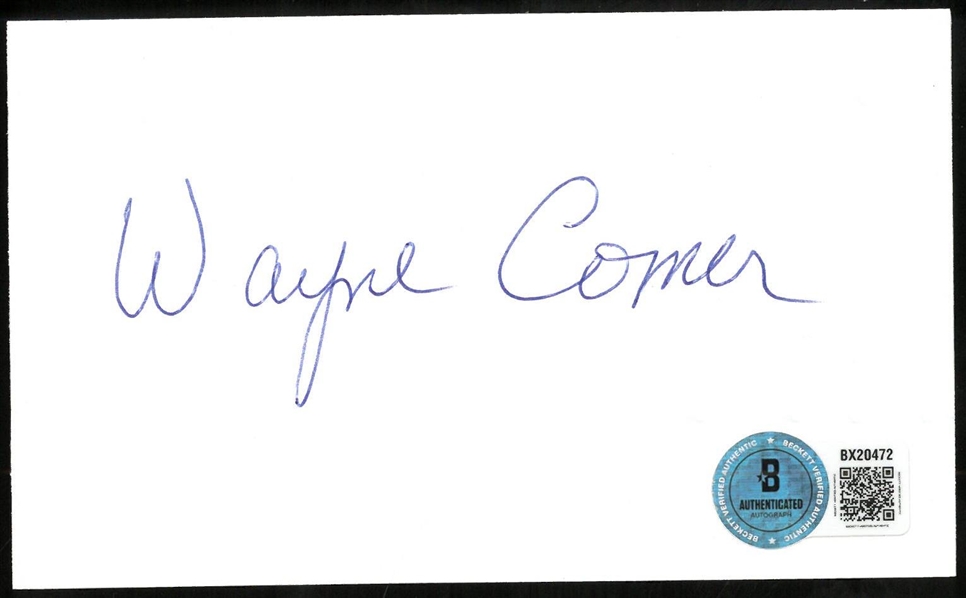 Wayne Comer
BECKETT VERIFIED AUTHENTIC ★ BECKETT VERIFIED AUTHENTIC ★
B
AUTHENTICATED
AUTOGRAPH
BX20472